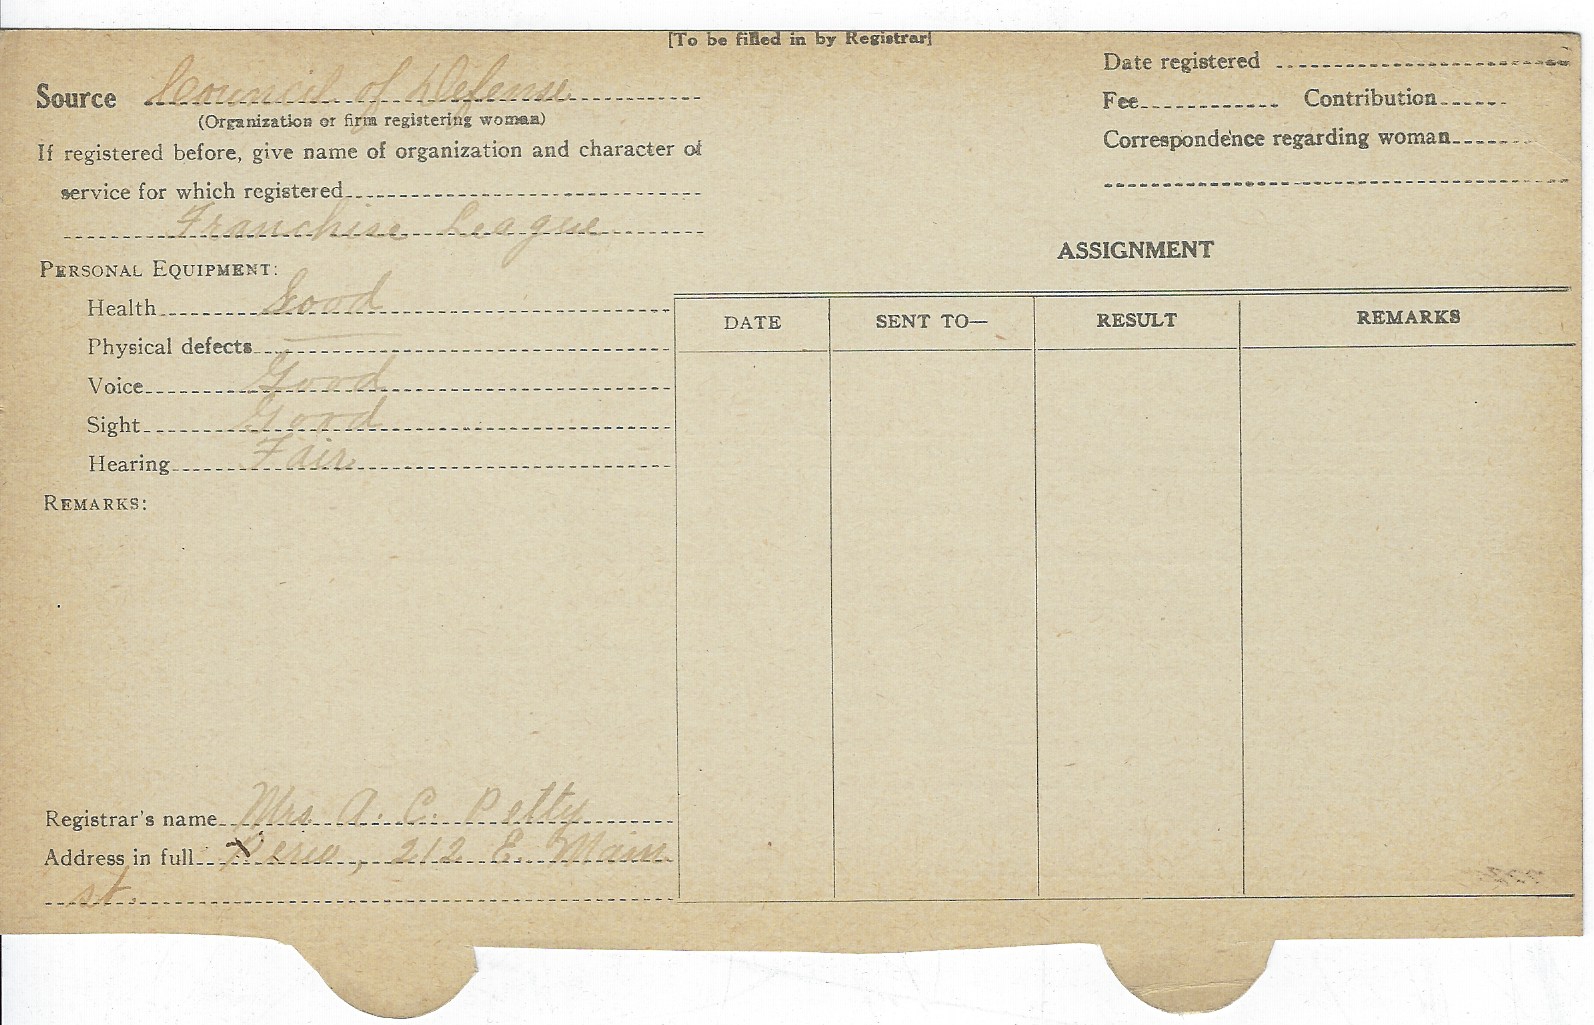 [To be filled in by Registrar]
Source Council of Defense
(Organization or firm registering woman)
If registered before, give name of organization and character of
service for which registered
Franchise League
PERSONAL EQUIPMENT:
Health Good
Physical defects —
Voice Good
Sight Good
Hearing Fair
REMARKS:
Registrar's name Mrs. A. C. Petty
Address in full Peru, 212 E. Main
st.
Date registered
Fee Contribution
Correspondence regarding woman
ASSIGNMENT
DATE SENT TO— RESULT REMARKS